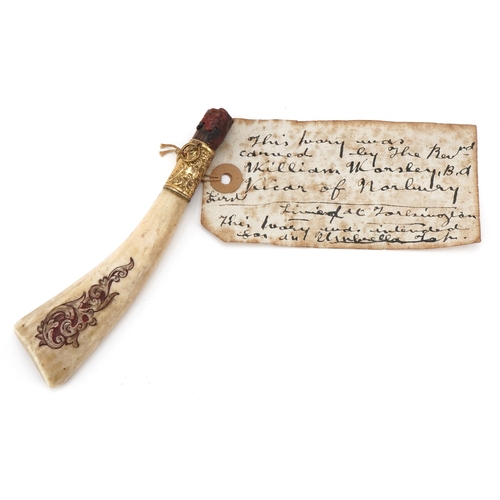 This Ivory was
carved by The Revd
William Worsley, B.A
Vicar of Norbury
First
This Ivory was intended
for an Umbrella Top